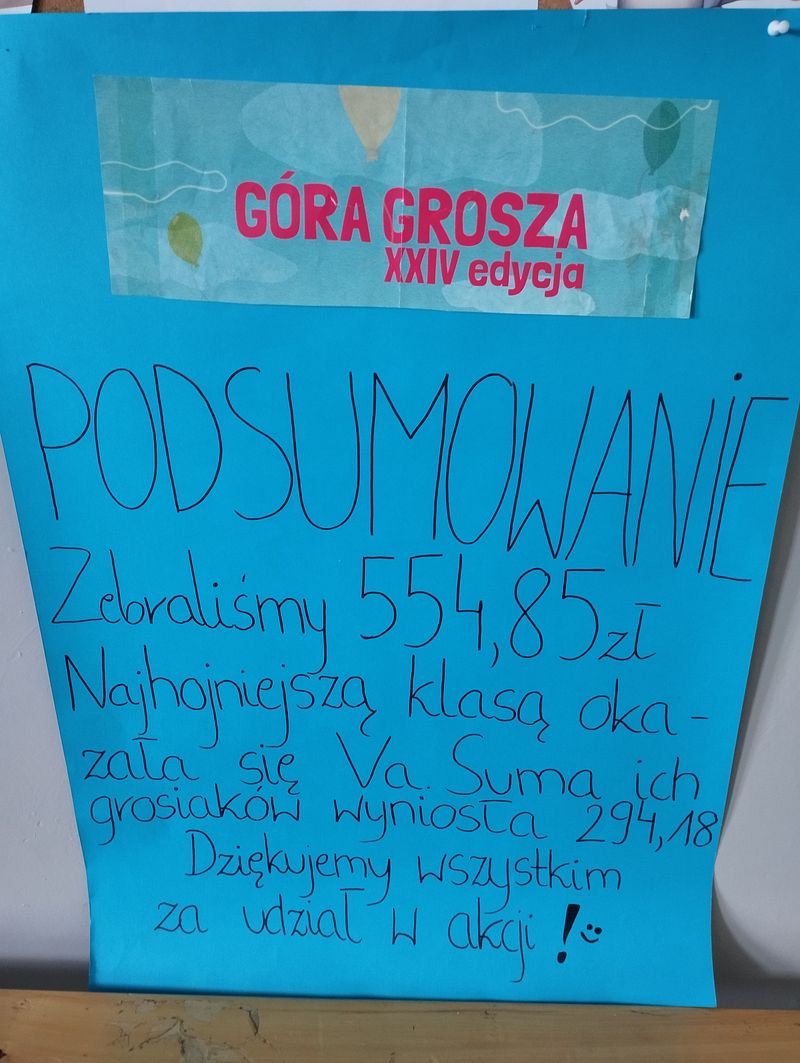 GÓRA GROSZA
XXIV edycja
PODSUMOWANIE
Zebraliśmy 554,85zł
Najhojniejszą klasą oka-
zała się Va. Suma ich
grosiaków wyniosła 294,18
Dziękujemy wszystkim
za udział w akcji !